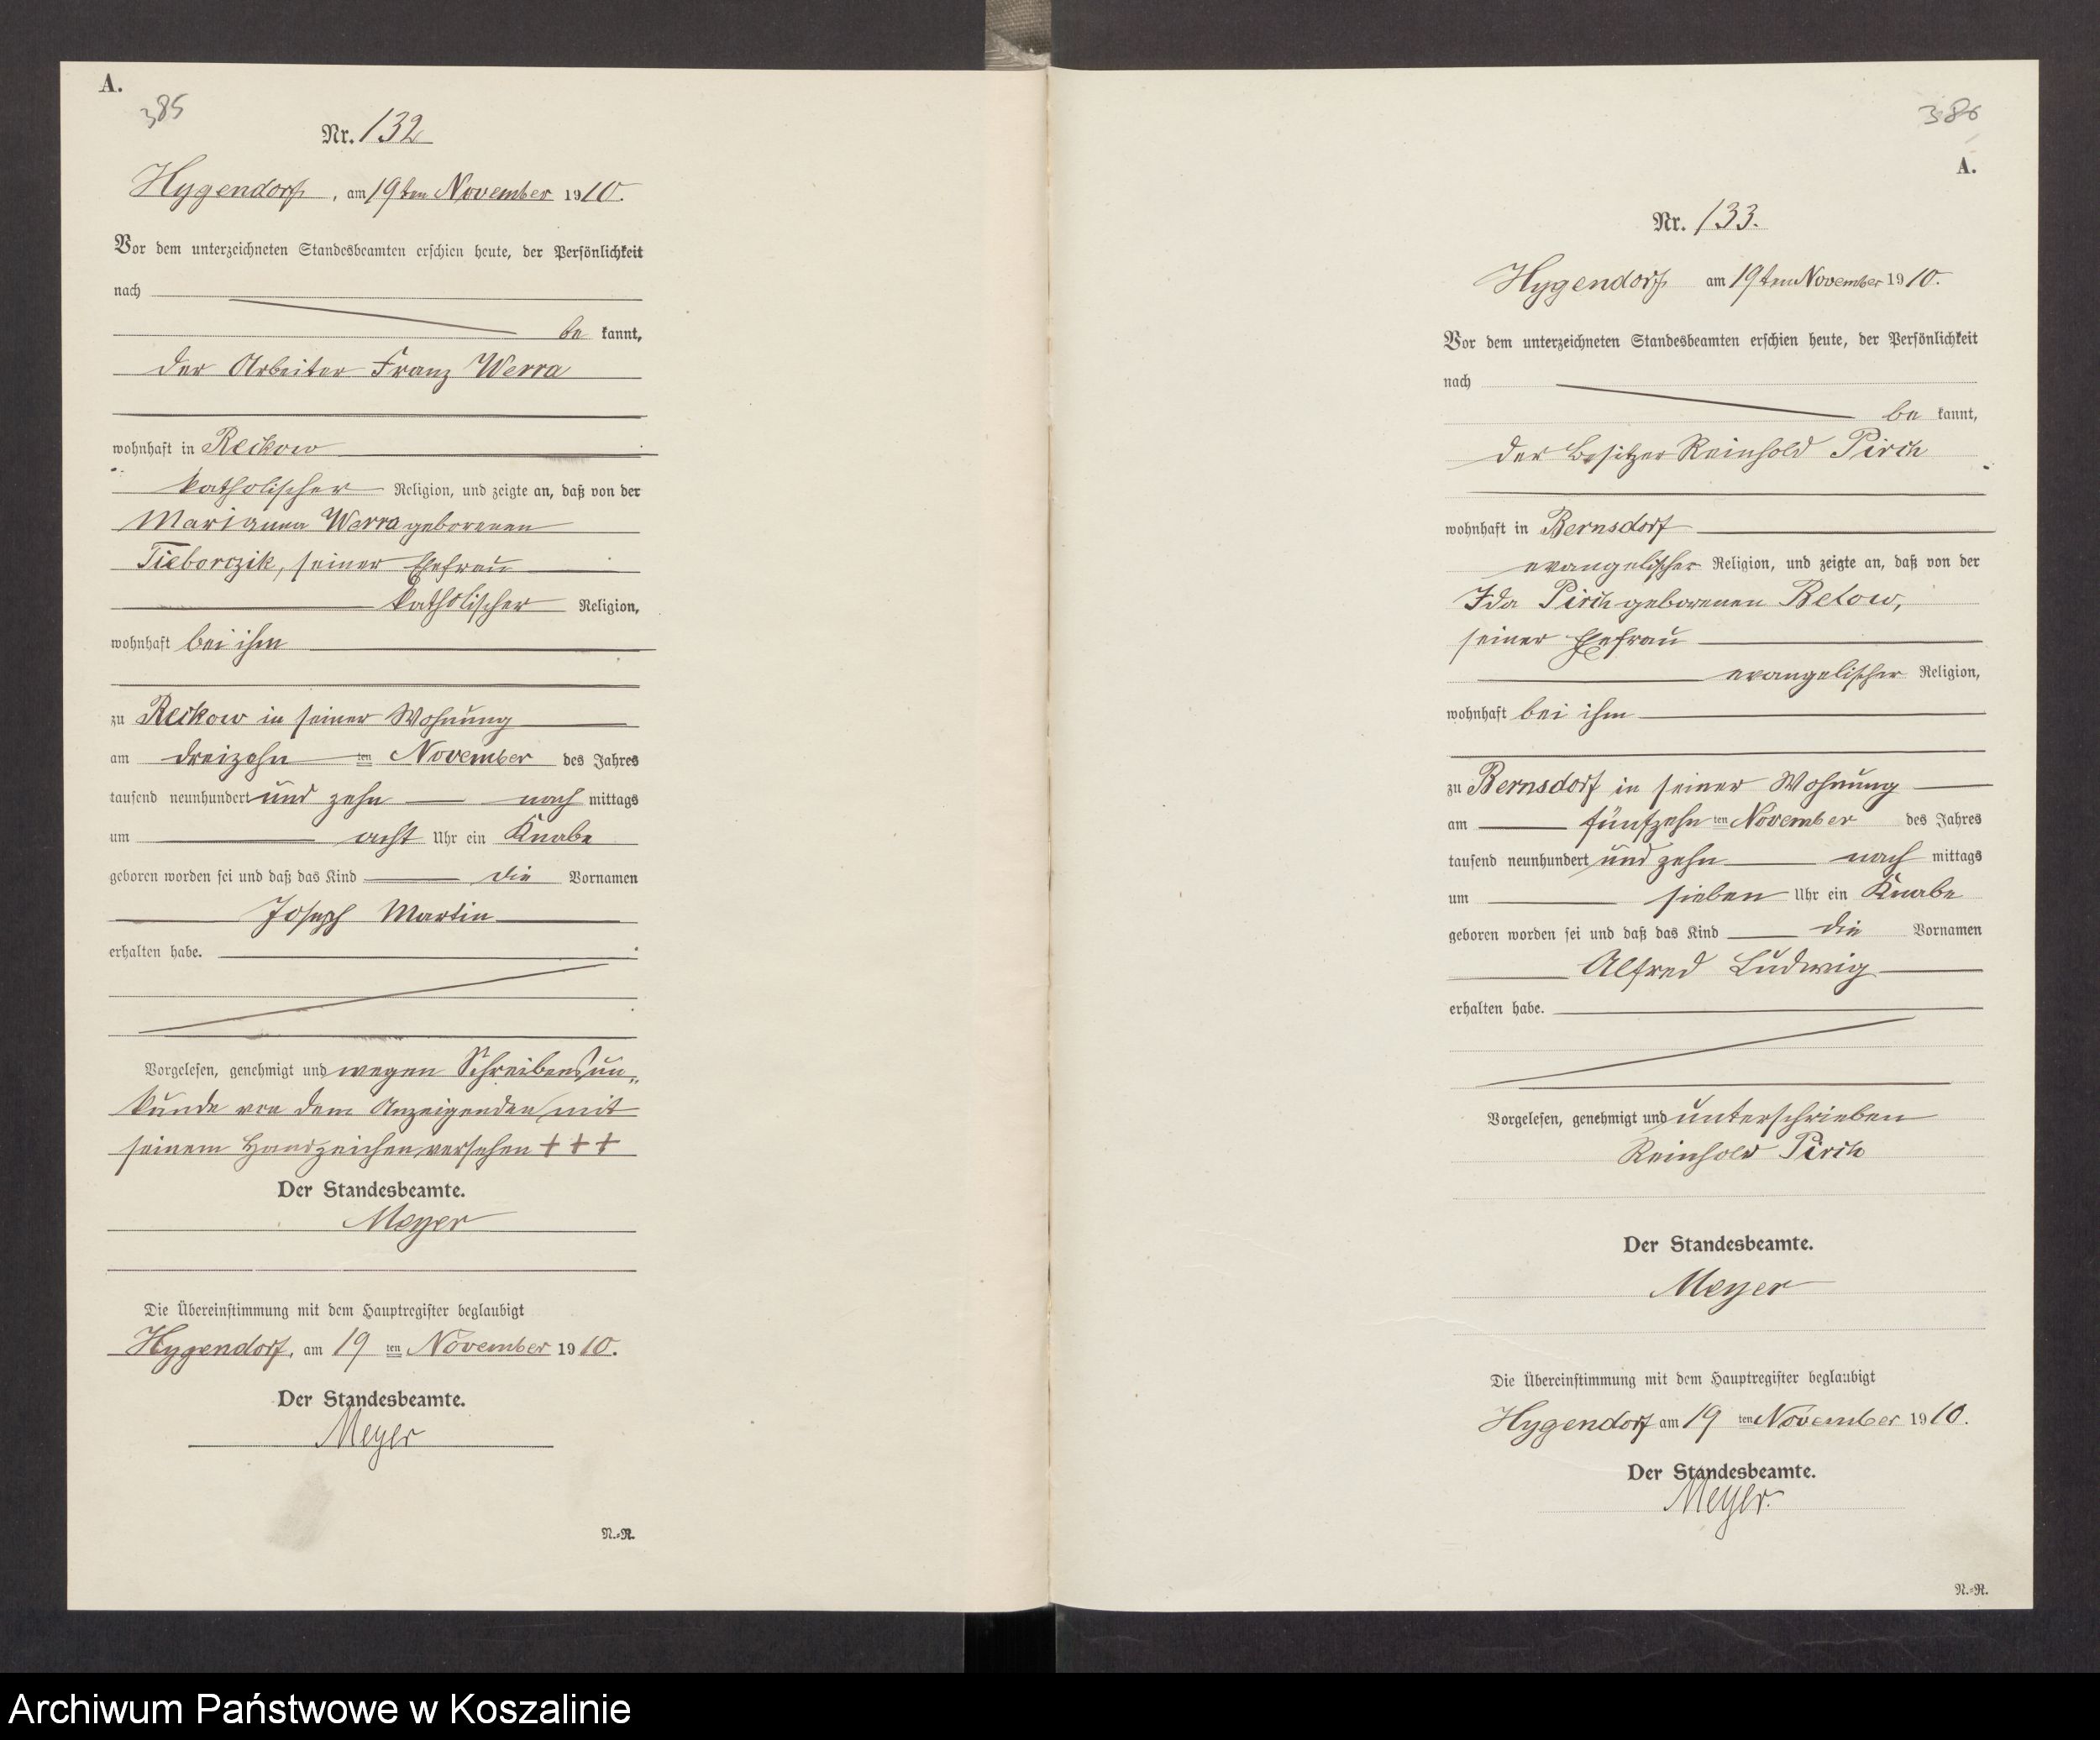 A.
385
Nr. 132
Hygendorf, am 19ten November 1910.
Vor dem unterzeichneten Standesbeamten erschien heute, der Persönlichkeit
nach
be kannt,
der Arbeiter Franz Werra
wohnhaft in Reckow
katholischer Religion, und zeigte an, daß von der
Marianna Werra geborenen
Tieborczik, seiner Ehefrau
katholischer Religion,
wohnhaft bei ihm
zu Reckow in seiner Wohnung
am dreizehn ten November des Jahres
tausend neunhundert und zehn nach mittags
um acht Uhr ein Knabe
geboren worden sei und daß das Kind die Vornamen
Joseph Martin
erhalten habe.
Vorgelesen, genehmigt und wegen Schreibensun„
kunde von dem Anzeigenden mit
seinem Handzeichen versehen + + +
Der Standesbeamte.
Meyer
Die Übereinstimmung mit dem Hauptregister beglaubigt
Hygendorf, am 19 ten November 1910.
Der Standesbeamte.
Meyer
N.=R.
386
A.
Nr. 133.
Hygendorf am 19ten November 1910.
Vor dem unterzeichneten Standesbeamten erschien heute, der Persönlichkeit
nach
be kannt,
der Besitzer Reinhold Pirch
wohnhaft in Bernsdorf
evangelischer Religion, und zeigte an, daß von der
Ida Pirch geborenen Betow,
seiner Ehefrau
evangelischer Religion,
wohnhaft bei ihm
zu Bernsdorf in seiner Wohnung
am fünfzehn ten November des Jahres
tausend neunhundert und zehn nach mittags
um sieben Uhr ein Knabe
geboren worden sei und daß das Kind die Vornamen
Alfred Ludwig
erhalten habe.
Vorgelesen, genehmigt und unterschrieben
Reinhold Pirch
Der Standesbeamte.
Meyer
Die Übereinstimmung mit dem Hauptregister beglaubigt
Hygendorf am 19 ten November 1910.
Der Standesbeamte.
Meyer.
N.=R.
Archiwum Państwowe w Koszalinie